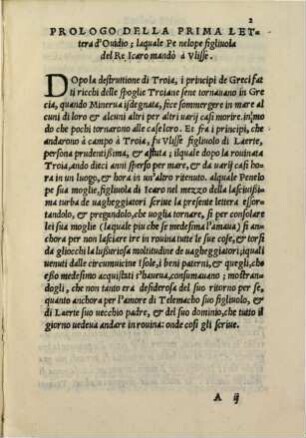 2
PROLOGO DELLA PRIMA LET-
tera d'Ouidio; laquale Penelope figliuola
del Re Icaro mandò à Vlisse.
DOpo la destruttione di Troia, i principi de Greci fat
ti ricchi delle spoglie Troiane sene tornauano in Gre
cia, quando Minerua isdegnata, fece sommergere in mare al
cuni di loro & alcuni altri per altri uarij casi morire. in modo
che pochi tornarono alle case loro. Et fra i principi, che
andarono à campo à Troia, fu Vlisse figliuolo di Laerte,
persona prudentissima, & astuta; ilquale dopo la rouina à
Troia, andò dieci anni sperso per mare, & da uarij casi ho
ra in un luogo, & hora in un'altro ritenuto. alquale Penelo
pe sua moglie, figliuola di Icaro nel mezzo della lasciuissi
ma turba de uagheggiatori scriue la presente lettera essor-
tandolo, & pregundolo, che uoglia tornare, si per consolare
lei sua moglie (laquale piu che se medesima l'amaua) si an-
chora per non lasciare ire in rouina tutte le sue cose, & torsi
da gliocchi la lussuriosa moltitudine de uagheggiatori, iquali
uenuti dalle circumuicine Isole, i beni paterni, & quegli, che
esso medesimo acquistati s'haueua, consumauano; mostran-
dogli, che non tanto era desiderosa del suo ritorno per se,
quanto anchora per l'amore di Telemacho suo figliuolo, &
di Laerte suo uecchio padre, & del suo dominio, che tutto il
giorno uedeua andare in rouina: onde cosi gli scriue.
A ij